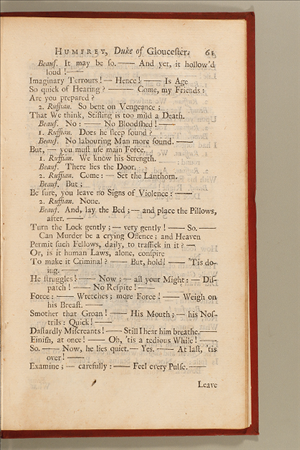 HUMFREY, Duke of Gloucester. 61
Beauf. It may be so. —— And yet, it hollow'd
loud! ——
Imaginary Terrours! — Hence! —— Is Age
So quick of Hearing? —— Come, my Friends:
Are you prepared?
2. Ruffian. So bent on Vengeance;
That We think, Stifling is too mild a Death.
Beauf. No: —— No Bloodshed! ——
1. Ruffian. Does he sleep sound?
Beauf. No labouring Man more sound. ——
But, — you must use main Force.
1. Ruffian. We know his Strength.
Beauf. There lies the Door.
2. Ruffian. Come: — Set the Lanthorn.
Beauf. But;
Be sure, you leave no Signs of Violence: ——
2. Ruffian. None.
Beauf. And, lay the Bed; — and place the Pillows,
after. ——
Turn the Lock gently; — very gently! —— So. ——
Can Murder be a crying Offence; and Heaven
Permit such Fellows, daily, to traffick in it? —
Or, is it human Laws, alone, conspire
To make it Criminal? —— But, hold! —— 'Tis do-
ing. ——
He struggles! —— Now; — all your Might: — Dis-
patch! —— No Respite! ——
Force: —— Wretches; more Force! —— Weigh on
his Breast. ——
Smother that Groan! —— His Mouth; — his Nos-
trils: Quick! ——
Dastardly Miscreants! —— Still I hear him breathe. ——
Finish, at once! —— Oh, 'tis a tedious While! ——
So. —— Now, he lies quiet. — Yes. —— At last, 'tis
over! ——
Examine; — carefully: —— Feel every Pulse. ——
Leave